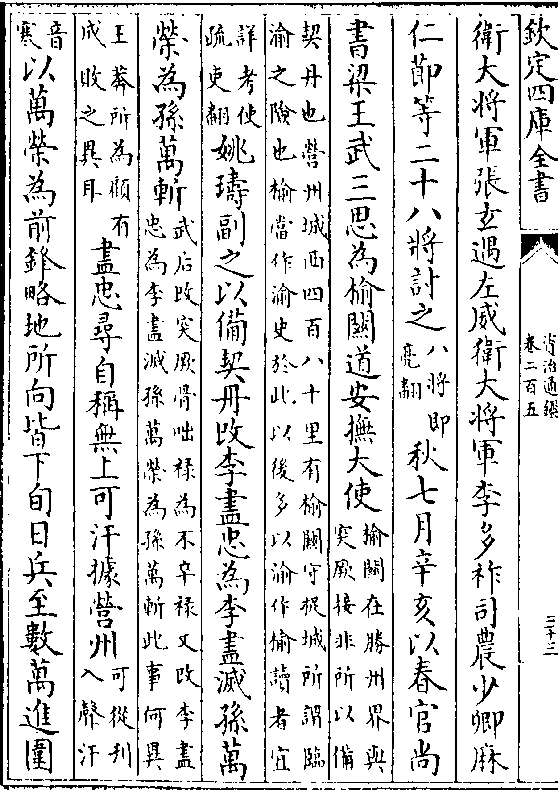 欽定四庫全書
資治通鑑
卷二百五
二十三
衛大將軍張玄遇左威衛大將軍李多祚司農少卿麻
仁節等二十八將討之八將即亮翻秋七月辛亥以春官尚
書梁王武三思為榆關道安撫大使榆關在勝州界與突厥接非所以備
契丹也營州城西四百八十里有榆關守捉城所謂臨渝之險也榆當作渝史於此以後多以渝作榆讀者宜
詳考使疏吏翻姚璹副之以備契丹改李盡忠為李盡滅孫萬
榮為孫萬斬武后改突厥骨咄祿為不卒祿又改李盡忠為李盡滅孫萬榮為孫萬斬此事何異
王莽所為顧有成敗之異耳盡忠尋自稱無上可汗據營州可從刋入聲汗
音寒以萬榮為前鋒略地所向皆下旬日兵至數萬進圍